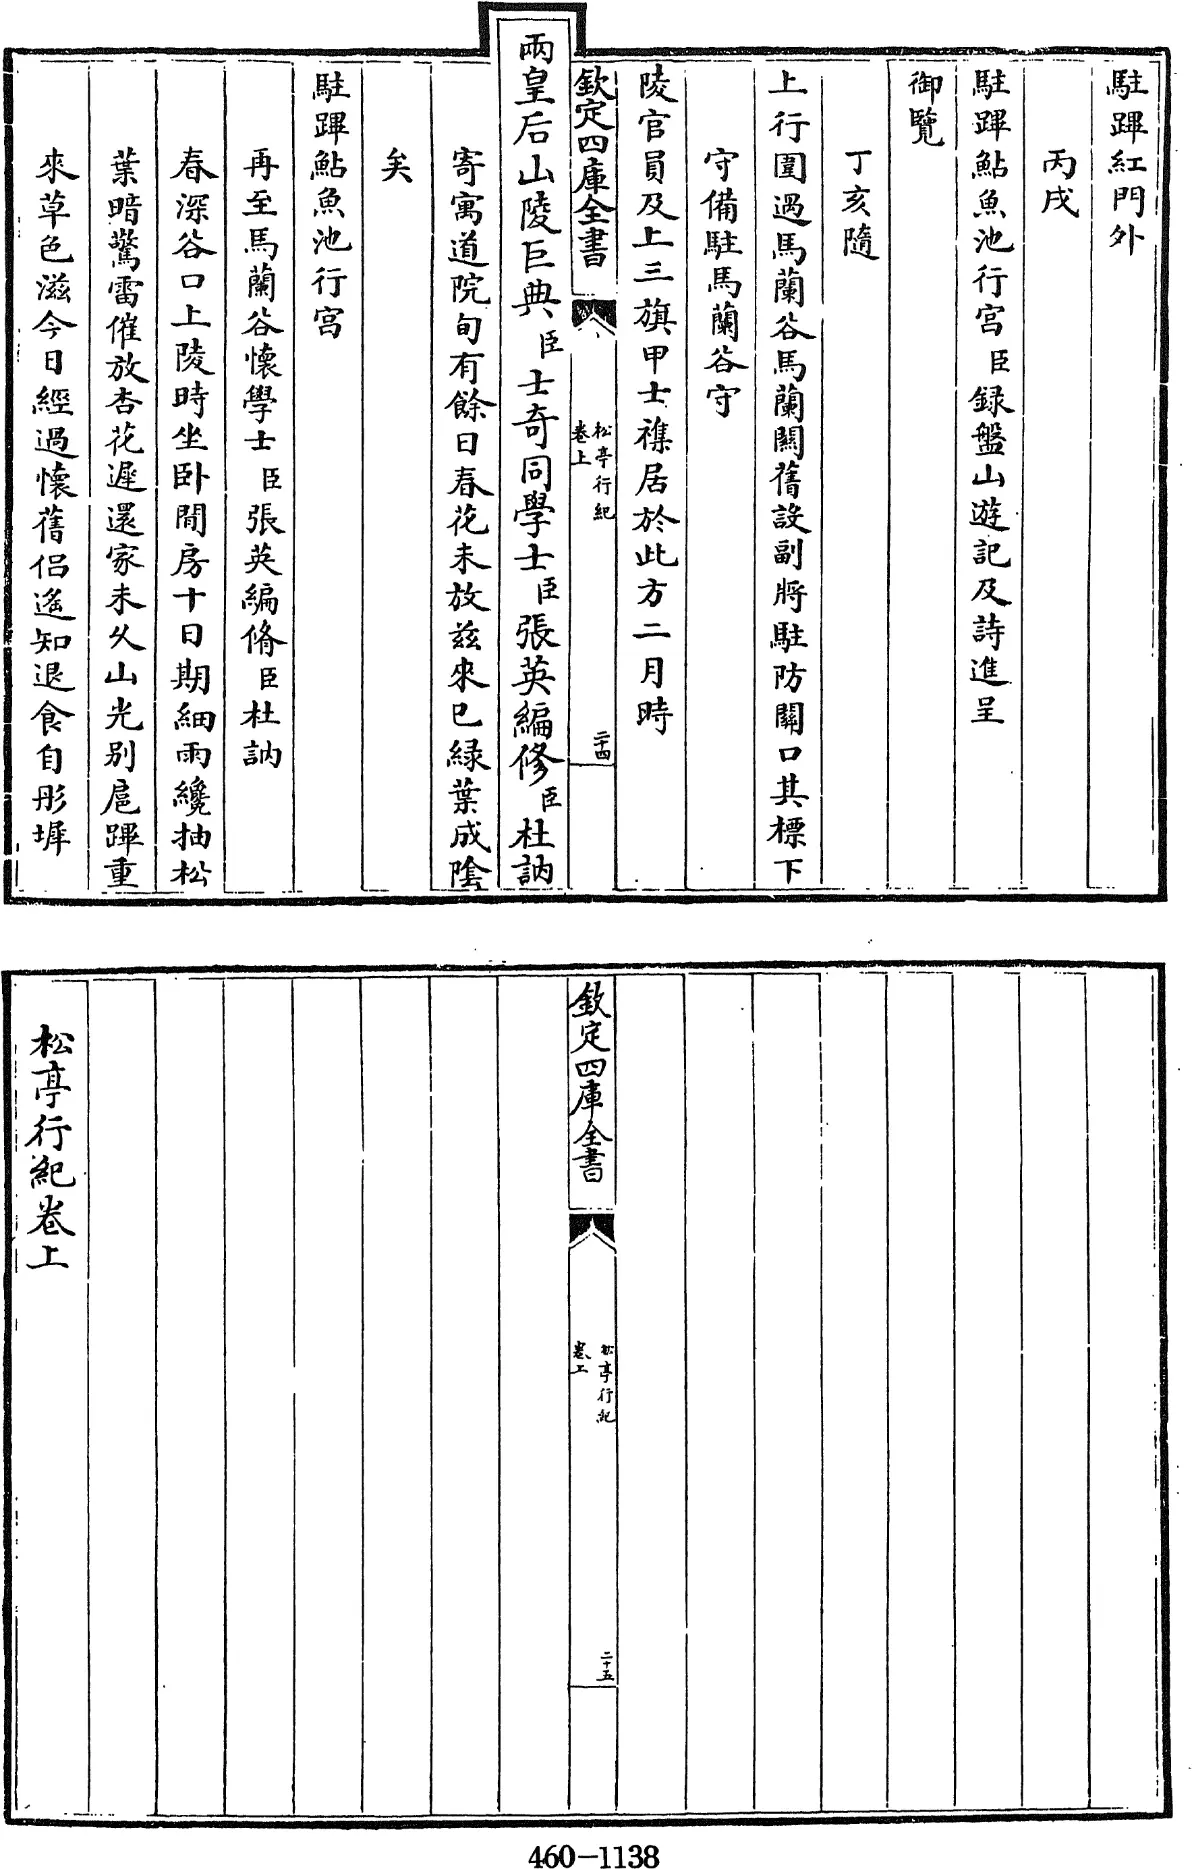 駐蹕紅門外
丙戌
駐蹕鮎魚池行宮臣録盤山遊記及詩進呈
御覽
丁亥隨
上行圍過馬蘭谷馬蘭關舊設副將駐防關口其標下
守備駐馬蘭谷守
陵官員及上三旗甲士襍居於此方二月時
欽定四庫全書
松亭行紀
卷上
二十四
兩皇后山陵巨典臣士奇同學士臣張英編修臣杜訥
寄寓道院旬有餘日春花未放兹來已緑葉成陰
矣
駐蹕鮎魚池行宮
再至馬蘭谷懷學士臣張英編脩臣杜訥
春深谷口上陵時坐卧閒房十日期細雨纔抽松
葉暗驚雷催放杏花遲還家未久山光别扈蹕重
來草色滋今日經過懷舊侣遙知退食自彤墀
欽定四庫全書
松亭行紀
卷上
二十五
松亭行紀卷上
460-1138